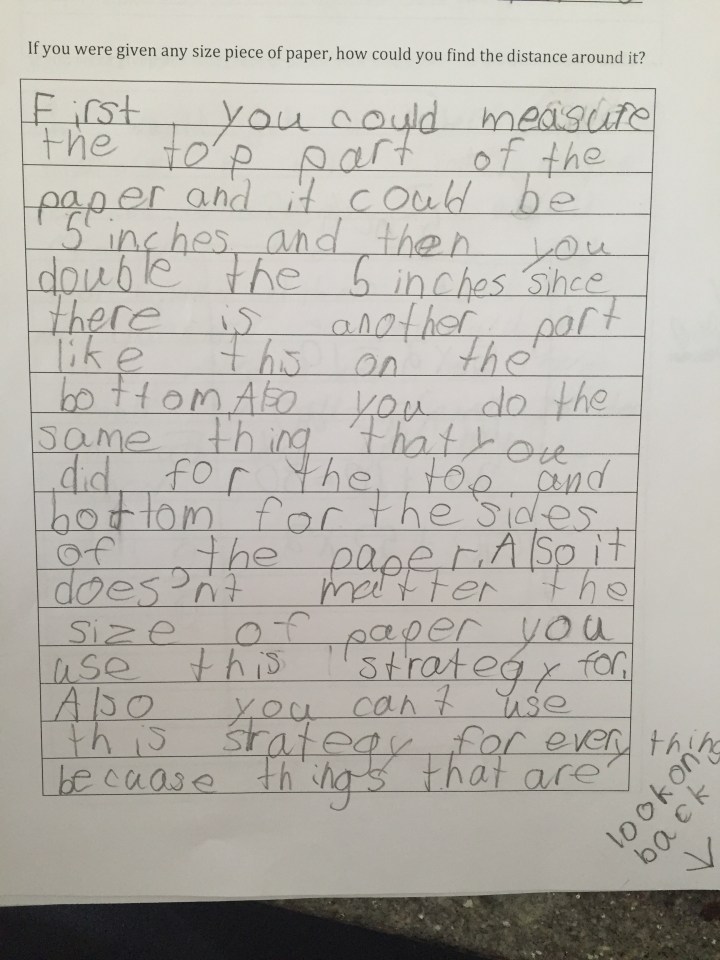 If you were given any size piece of paper, how could you find the distance around it?
First you could measure
the top part of the
paper and it could be
5 inches and then you
double the 5 inches since
there is another part
like this on the
bottom. Also you do the
same thing that you
did for the top and
bottom for the sides
of the paper. Also it
does'nt matter the
size of paper you
use this strategy for.
Also you can't use
this strategy for every thing
becuase things that are
look on
back